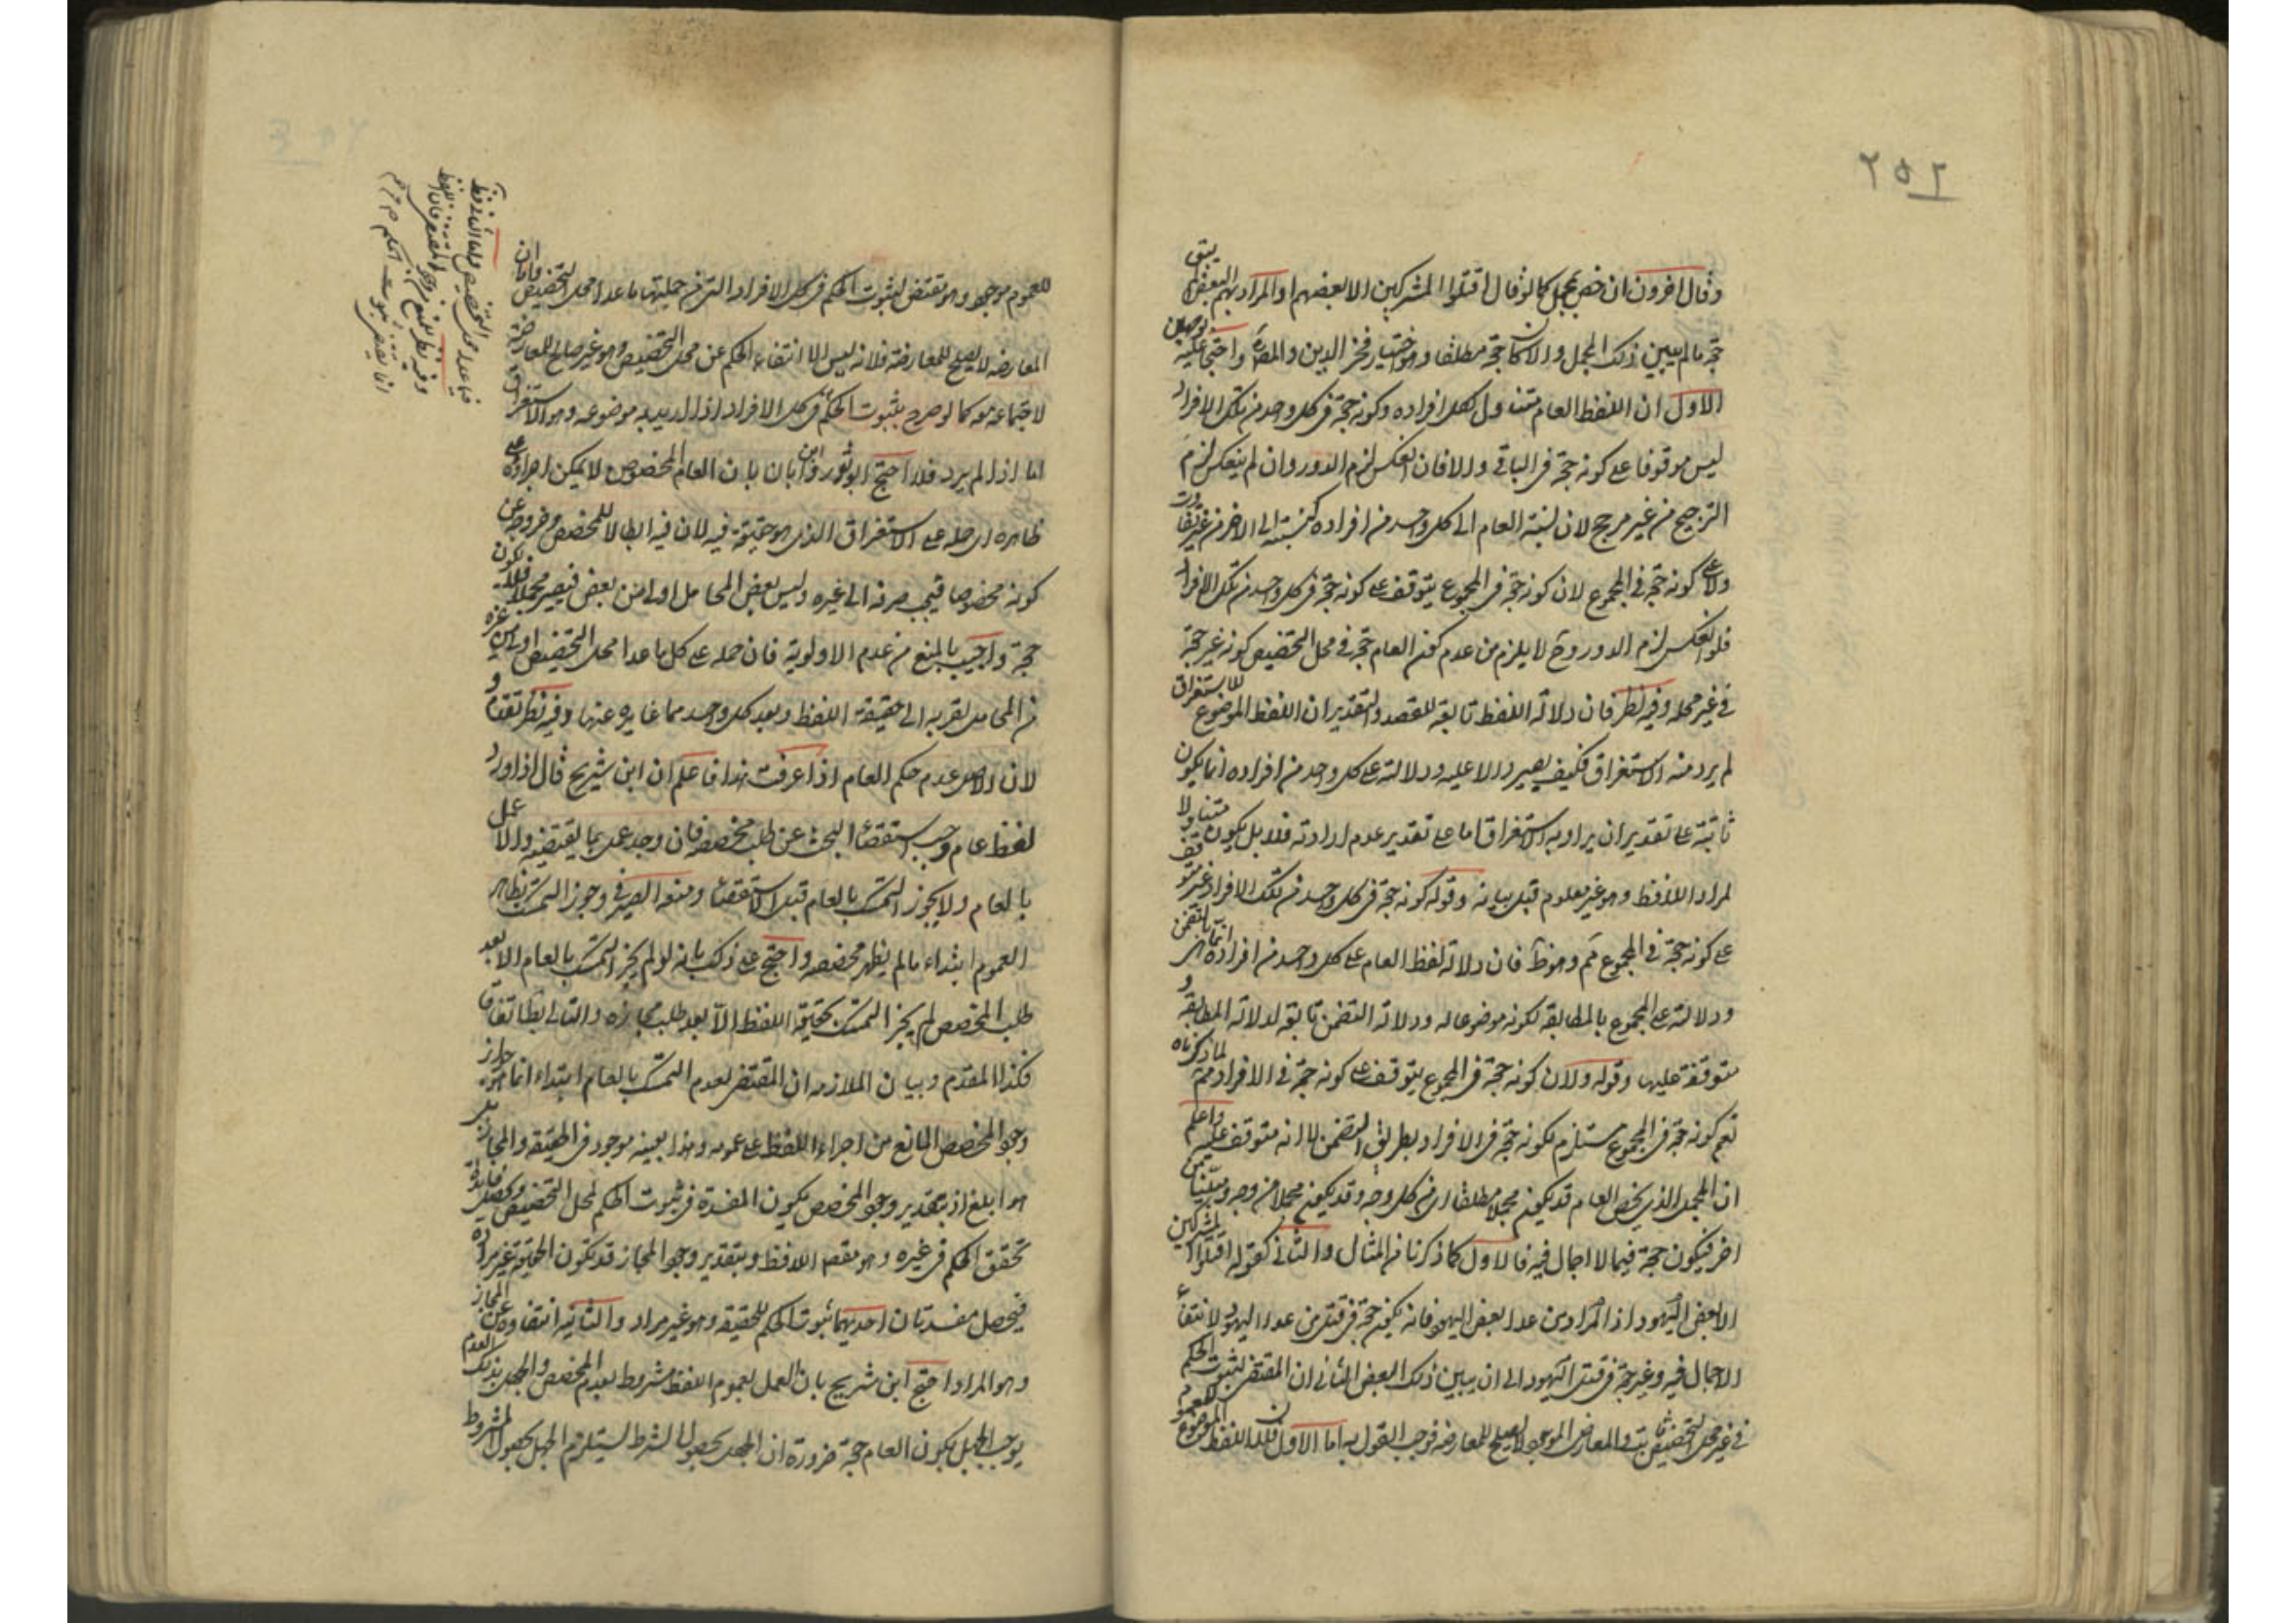 ٢٥٢
وقال اخرون ان خص بمجمل كما لو قال اقتلوا المشركين الا بعضهم او المراد بهم البعض لم يبق
حجة ما لم يبين ذلك المجمل والا كان حجة مطلقا وهو اختيار فخر الدين والمصنف واحتج عليه بوجهين
الاول ان اللفظ العام متناول لكل افراده وكونه حجة في كل واحد من تلك الافراد
ليس موقوفا على كونه حجة في الباقي والا فان انعكس لزم الدور وان لم ينعكس لزم
الترجيح من غير مرجح لان نسبة العام الى كل واحد من افراده كنسبته الى الاخر من غير تفاوت
ولا على كونه حجة في المجموع لان كونه حجة في المجموع يتوقف على كونه حجة في كل واحد من تلك الافراد
فلو انعكس لزم الدور وح لا يلزم من عدم كون العام حجة في محل التخصيص كونه غير حجة
في غير محله وفيه نظر فان دلالة اللفظ تابعة للقصد والتقدير ان اللفظ الموضوع للاستغراق
لم يرد منه الاستغراق فكيف يصير دالا عليه ودلالته على كل واحد من افراده انما يكون
ثابتة على تقدير ان يراد به الاستغراق اما على تقدير عدم ارادته فلا بل يكون متناولا
لمراد اللافظ وهو غير معلوم قبل بيانه وقوله كونه حجة في كل واحد من تلك الافراد غير متوقف
على كونه حجة في المجموع مم وهو ظ فان دلالة لفظ العام على كل واحد من افراده انما هي بالتضمن
ودلالته على المجموع بالمطابقة لكونه موضوعا له ودلالة التضمن تابعة لدلالة المطابقة و
متوقفة عليها وقوله ولان كونه حجة في المجموع يتوقف على كونه حجة في الافراد مم لما ذكرناه
نعم كونه حجة في المجموع مستلزم لكونه حجة في الافراد بطريق التضمن لا انه متوقف عليه واعلم
ان المجمل الذي يخص العام قد يكون مجملا مطلقا اي من كل وجه وقد يكون مجملا من وجه ومبينا من
اخر فيكون حجة فيما لا اجمال فيه فالاول كما ذكرنا في المثال والثاني كقوله اقتلوا المشركين
الا بعض اليهود اذ المراد من عدا بعض اليهود فانه يكون حجة في قتل من عدا اليهود لانتفاء
الاجمال فيه وغير حجة في قتل اليهود الى ان يبين ذلك البعض الثاني ان المقتضي لثبوت الحكم
في غير محل التخصيص ثابت والمعارض الموجود لا يصلح للمعارضة فوجب القول به اما الاول فلان اللفظ الموضوع للعموم
للعموم موجود وهو مقتض لثبوت الحكم في كل الافراد التي من جملتها ما عدا محل التخصيص واما ان
المعارض لا يصلح للمعارضة فلانه ليس الا انتفاء الحكم عن محل التخصيص وهو غير صالح للمعارضة
لاجتماعه معه كما لو صرح بثبوت الحكم في كل الافراد اذا اريد به موضوعه وهو الاستغراق
اما اذا لم يرد فلا احتج ابو ثور وابن ابان بان العام المخصوص لا يمكن اجراؤه على
ظاهره اي حمله على الاستغراق الذي هو حقيقة فيه لان فيه ابطالا للمخصص وخروجه عن
كونه مخصوصا فيجب صرفه الى غيره وليس بعض المحامل اولى من بعض فيصير مجملا فلا يكون
حجة واجيب بالمنع من عدم الاولوية فان حمله على كل ما عدا محل التخصيص اولى من غيره
من المحامل لقربه الى حقيقة اللفظ وبعد كل واحد مما غايره عنها وفيه نظر تقدم و
لان الاصل عدم حكم العام اذا عرفت هذا فاعلم ان ابن شريح قال اذا ورد
لفظ عام وجب استقصاء البحث عن طلب مخصصه فان وجد عمل بما يقتضيه والا عمل
بالعام ولا يجوز التمسك بالعام قبل الاستقصاء ومنعه الصيرفي وجوز التمسك بظاهر
العموم ابتداء ما لم يظهر مخصصه واحتج على ذلك بانه لو لم يجز التمسك بالعام الا بعد
طلب المخصص لم يجز التمسك بحقيقة اللفظ الا بعد طلب مجازه والتالي بط اتفاقا
فكذا المقدم وبيان الملازمة ان المقتضي لعدم التمسك بالعام ابتداء انما هو جواز
وجود المخصص المانع من اجراء اللفظ على عمومه وهذا بعينه موجود في الحقيقة والمجاز بل
هو ابلغ اذ بتقدير وجود المخصص يكون المفسدة في ثبوت الحكم لمحل التخصيص ويحصل فائدة
تحقق الحكم في غيره وهو مقصد اللافظ وبتقدير وجود المجاز قد تكون الحقيقة غير مرادة
فيحصل مفسدتان احديهما ثبوت الحكم للحقيقة وهو غير مراد والثانية انتفاؤه عن المجاز
وهو المراد احتج ابن شريح بان العمل بعموم اللفظ مشروط بعدم المخصص والجهل بذلك العدم
يوجب الجهل بكون العام حجة ضرورة ان الجهل بحصول الشرط يستلزم الجهل بحصول المشروط